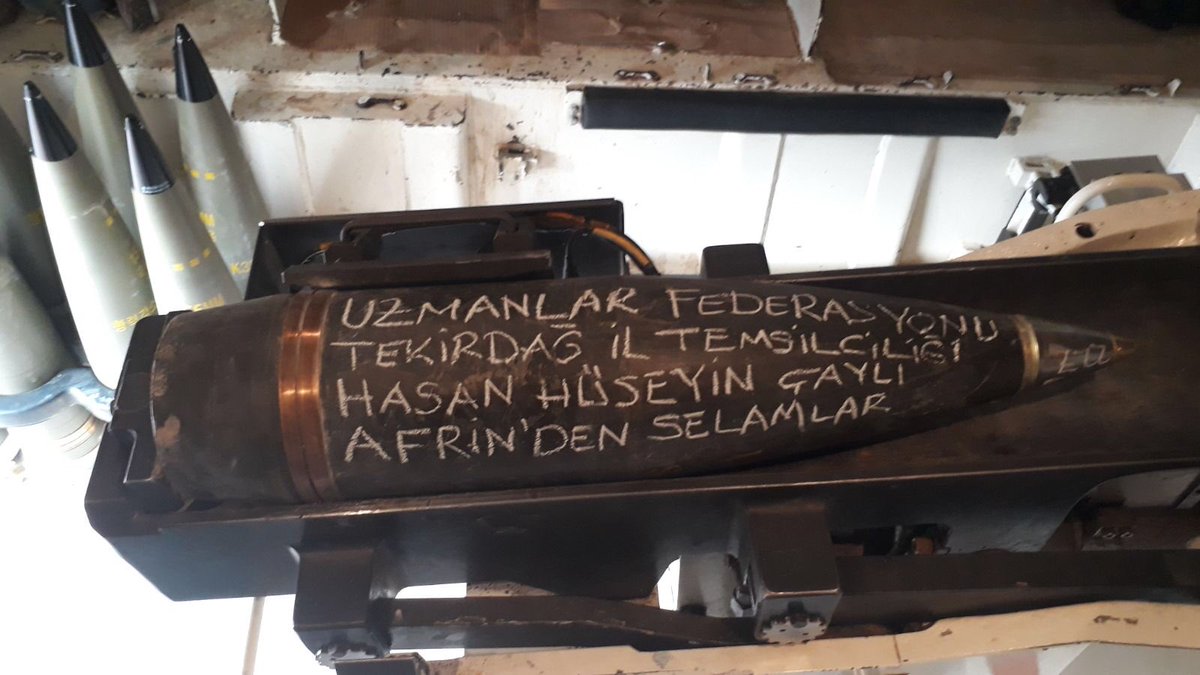 UZMANLAR FEDERASYONU
TEKİRDAĞ İL TEMSİLCİLİĞİ
HASAN HÜSEYİN ÇAYLI
AFRİN'DEN SELAMLAR